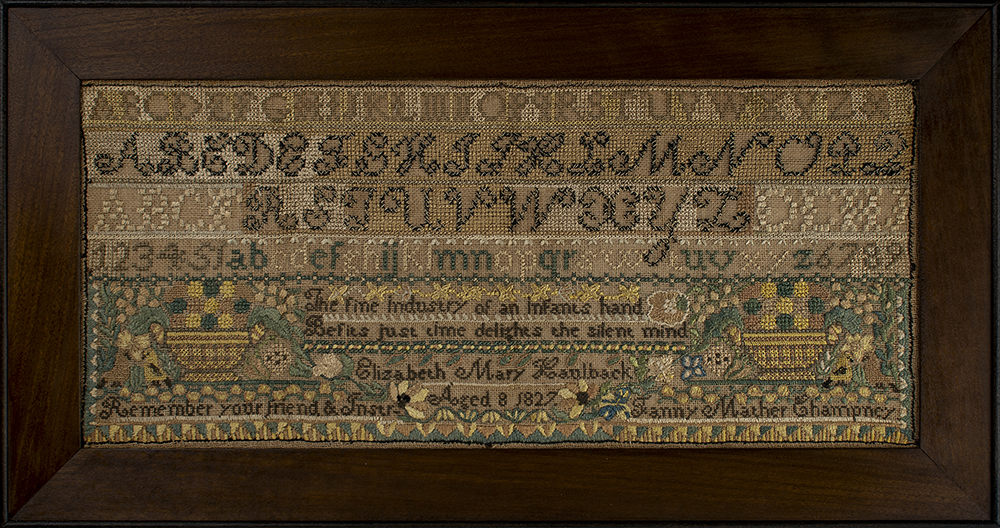 ABCDEFGHIJKLMNOPQRSTUVWXYZ&
ABCDEFGHIJKLMNOPQ
RSTUVWXYZ
12345 ab ef ij mn qr uv z 6789
The fine Industry of an Infants hand
Befits just time delights the silent mind
Elizabeth Mary Haulback
Aged 8 1827
Remember your friend & Instrs Fanny Mather Champney